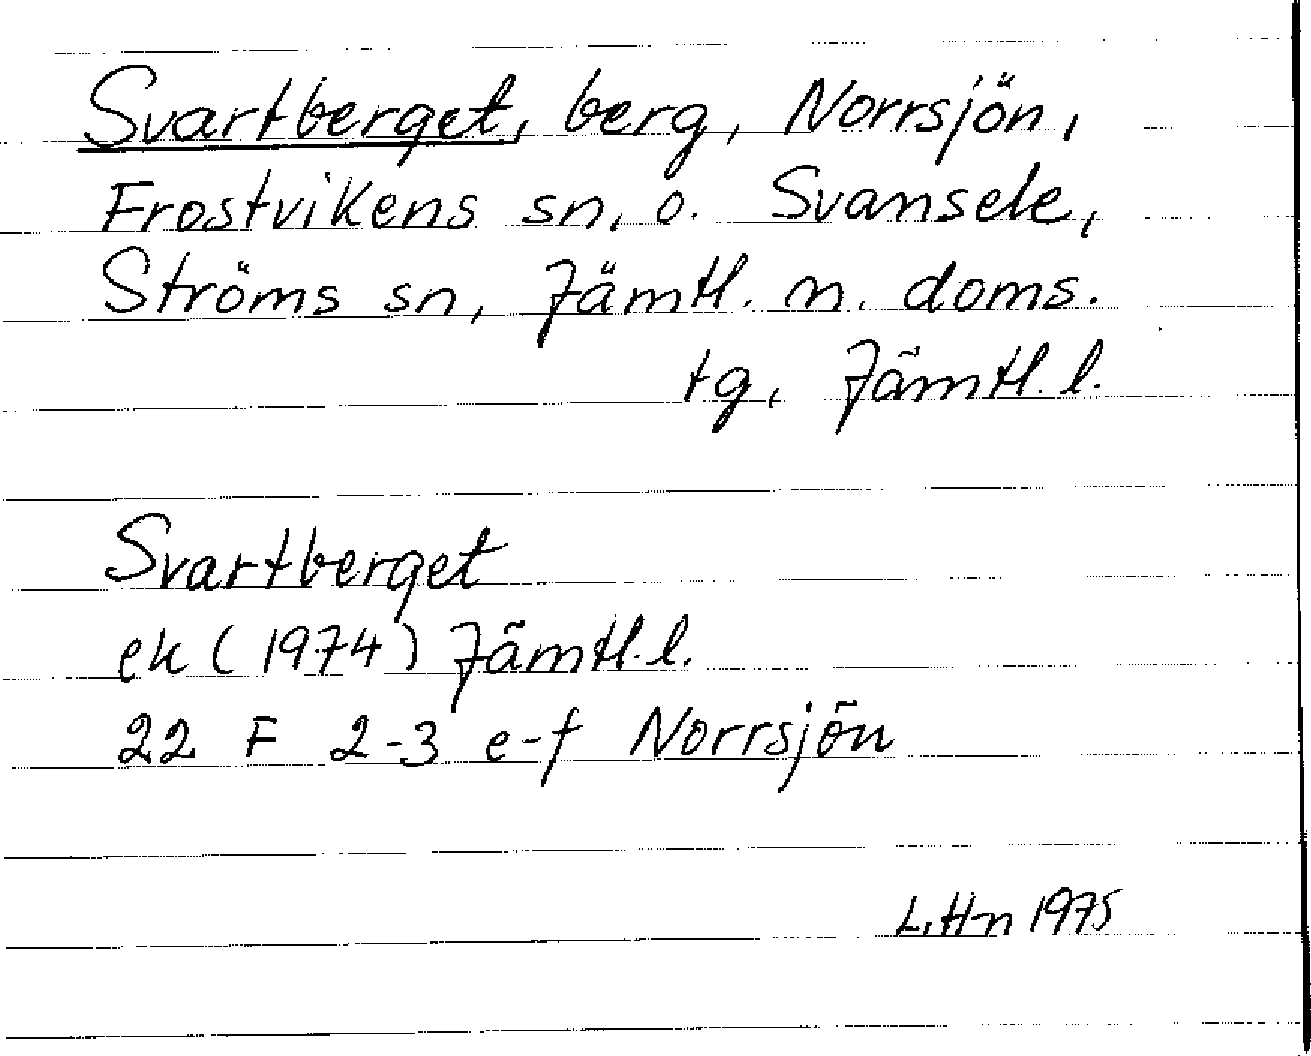 Svartberget, berg, Norrsjön,
Frostvikens sn, o. Svansele,
Ströms sn, Jämtl. n. doms.
tg, Jämtl. l.
Svartberget
ek (1974) Jämtl. l.
22 F 2-3 e-f Norrsjön
L. Hn 1975